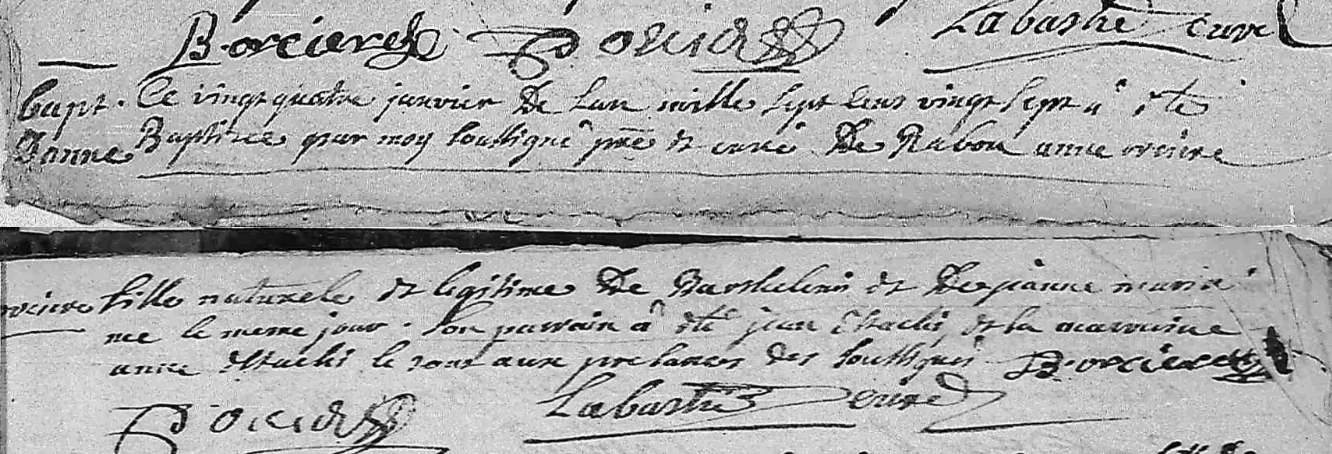 B. orciere P. orciere Labastie Curé
bapt. Ce vingt quatre janvier De lan mille sept cens vingt sept a été
d'anne Baptizée par moy soussigné pre et curé De Rabou anne orciere
orciere fille naturele et legitime De Barthelemi et De jeanne marin
née le meme jour. son parrain a été jean Estachi et la marraine
anne Estachi le tout aux presances des soussignés B. orciere
P. orciere Labastie Curé